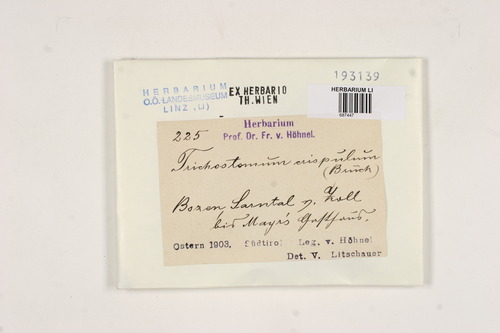 193139
HERBARIUM
O.Ö. LANDESMUSEUM
LINZ (LI)
EX HERBARIO
TH. WIEN
HERBARIUM LI
687447
Herbarium
Prof. Dr. Fr. v. Höhnel.
225
Trichostomum crispulum
(Bruch)
Bozen Sarntal v. Zoll
bis Mayr's Gasthaus.
Ostern 1903. Südtirol Leg. v. Höhnel
Det. V. Litschauer